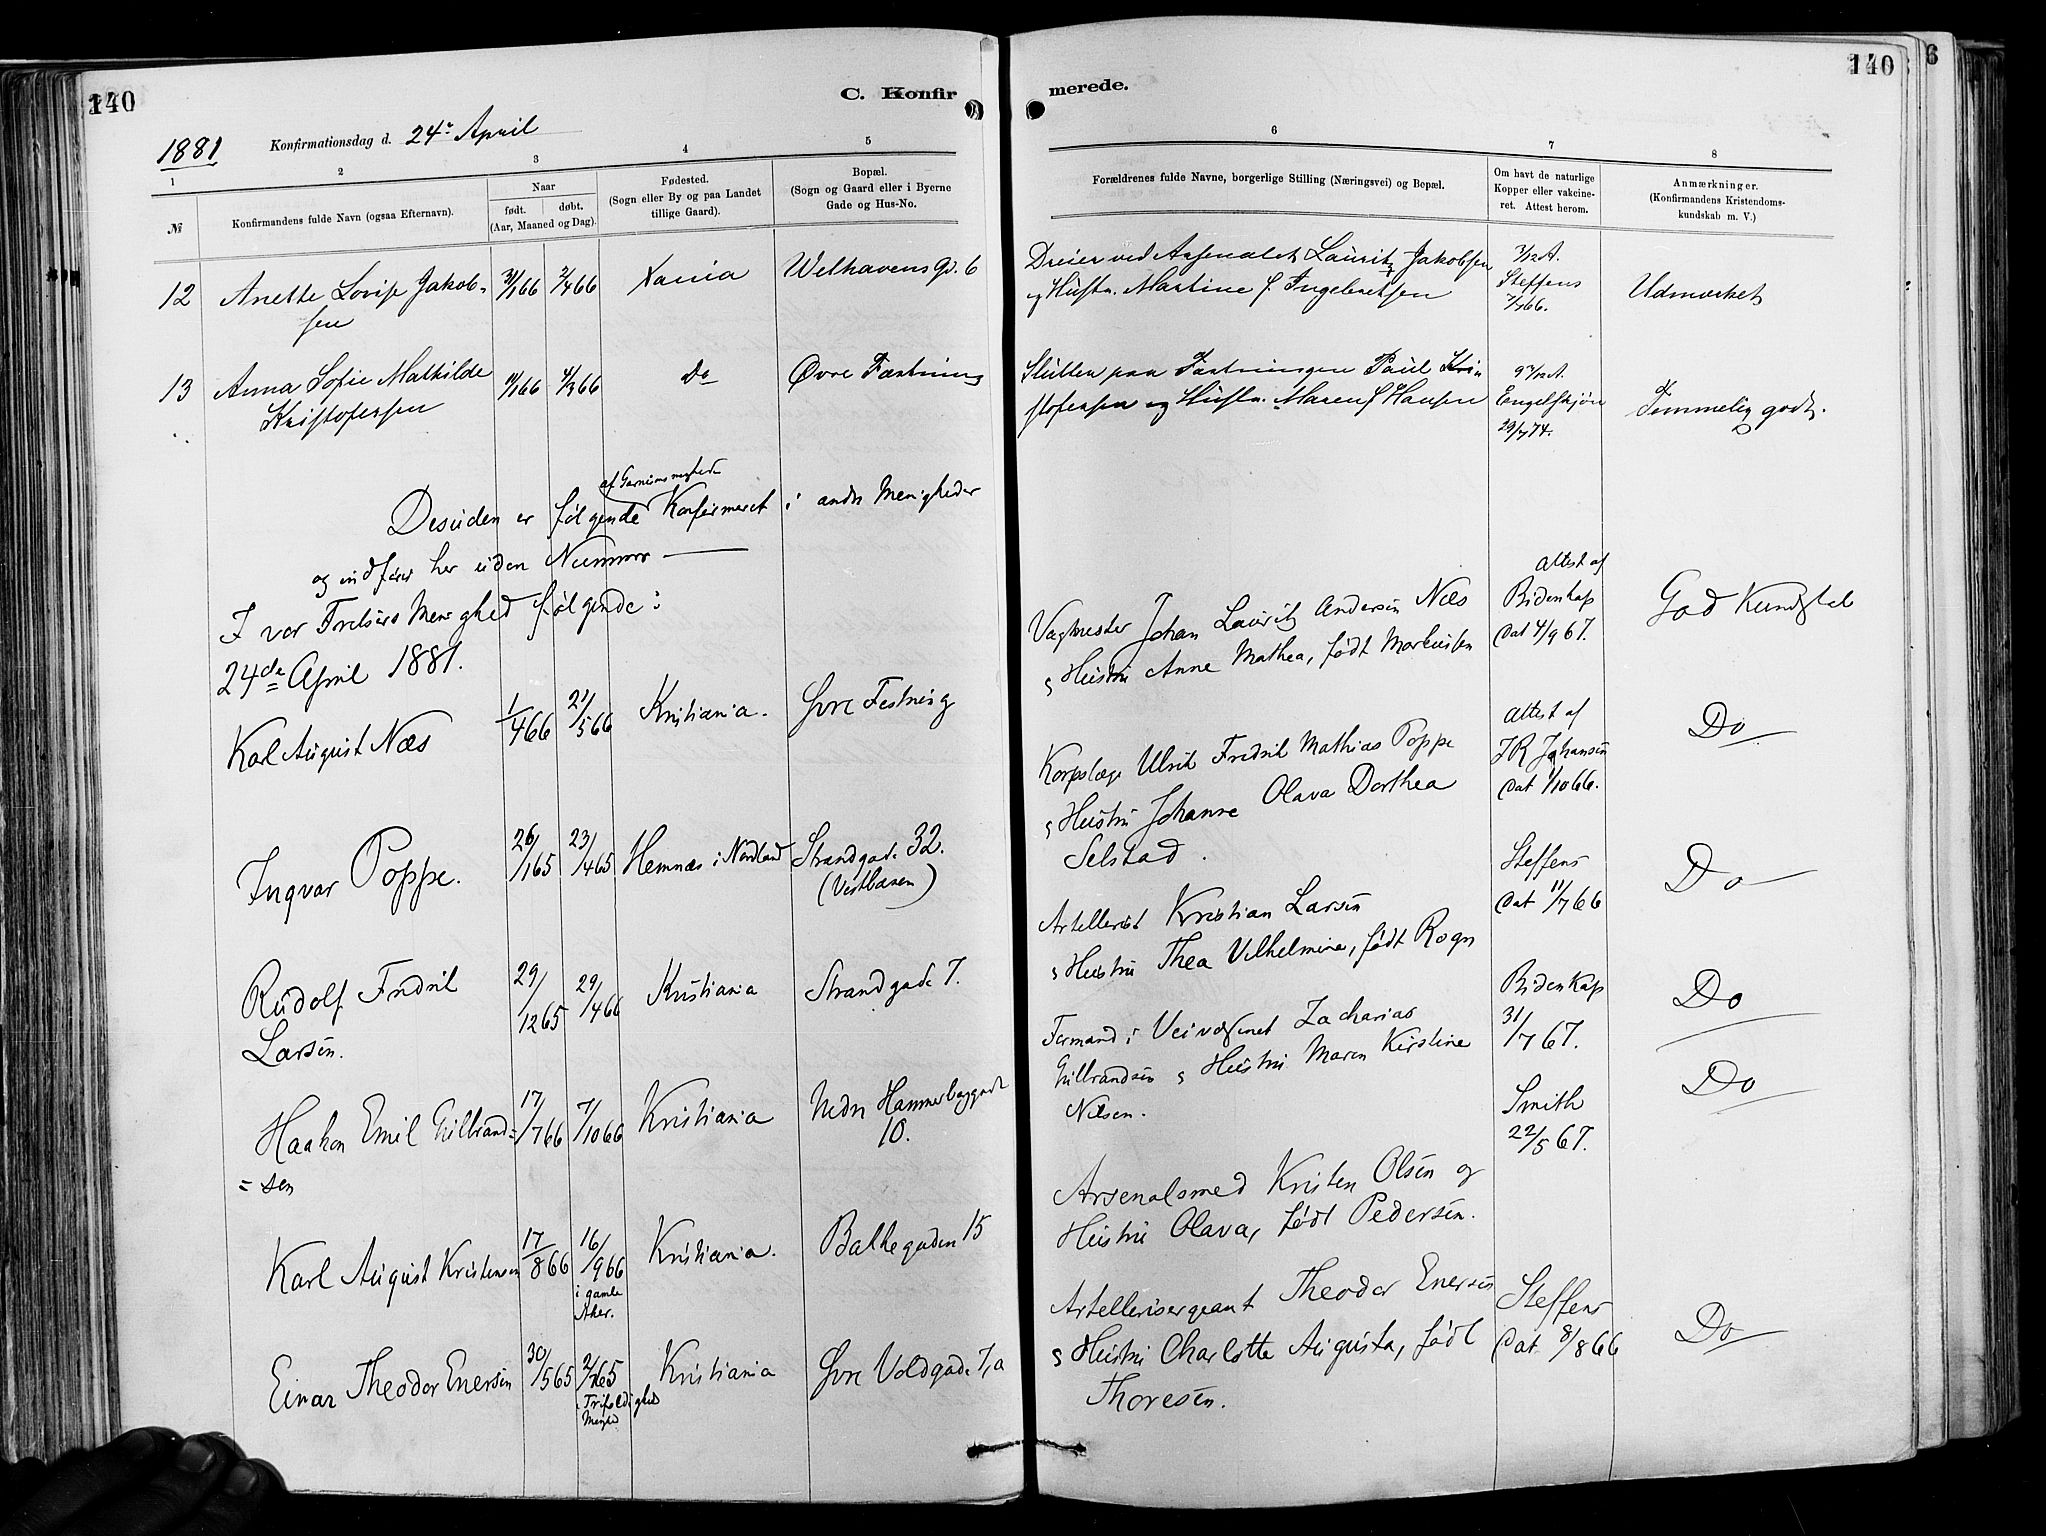 140
C. Konfir
merede.
140
6
1881
Konfirmationsdag d. 24de April
1
2
3
4
5
6
7
8
№
Konfirmandens fulde Navn (ogsaa Efternavn).
Naar
født.
døbt.
(Aar, Maaned og Dag).
Fødested.
(Sogn eller By og paa Landet
tillige Gaard).
Bopæl.
(Sogn og Gaard eller i Byerne
Gade og Hus-No.
Forældrenes fulde Navne, borgerlige Stilling (Næringsvei) og Bopæl.
Om havt de naturlige
Kopper eller vakcine-
ret. Attest herom.
Anmærkninger.
(Konfirmandens Kristendoms-
kundskab m. V.)
12
Anette Lovise Jakob-
sen
2/4 66
Xania
Welhavens G. 6
Dreier ved Arsenalet Lauritz Jakobsen
og Hustr. Martine f. Ingebretsen
Steffens
7/7 66.
Udmærket
13
Anna Sofie Mathilde
Kristofersen
4/3 66
Do
Øvre Fæstning
Slutter paa Fæstningen Paul Kri
stofersen og Hustr. Maren f. Hansen
Engelskjøn
29/7 74.
Temmelig godt.
af Garnisonsmenighed
Desuden er følgende Konfirmeret i andre Menigheder
og indføres her uden Nummer
I vor Frelsers Menighed følgende:
24de April 1881.
Karl August Næs
1/4 66
21/5 66
Kristiania.
Øvre Festning
Vagtmester Johan Lauritz Andersen Næs
og Hustru Anne Mathea, født Markussen
Attest af
Bidenkap
Dat 4/9 67.
God Kundskab
Ingvar Poppe.
26/1 65
23/4 65
Hemnæs i Nordland
Strandgade 32.
(Vestbanen)
Korpslæge Ulrik Fredrik Mathias Poppe
og Hustru Johanne Olava Dorthea
Selstad.
Attest af
J R Johansen
Dat 1/10 66.
Do
Rudolf Fredrik
Larsen.
29/12 65
29/4 66
Kristiania
Strandgade 7.
Artellerist Kristian Larsen
og Hustru Thea Vilhelmine, født Rogn
Steffens
Dat 11/7 66
Do
Haakon Emil Gulbrand=
=sen
17/7 66
7/10 66
Kristiania
Nedre Hammersborggade
10.
Formand i Veivæsenet Zacharias
Gulbrandsen og Hustru Maren Kirstine
Nilsen.
Bidenkap
31/7 67.
Do
Karl August Kristensen
17/8 66
16/9 66
i gamle
Aker.
Kristiania.
Bakkegaden 15
Arsenalsmed Kristen Olsen og
Hustru Olava, født Pedersen.
Smith
22/5 67.
Do
Einar Theodor Enersen
30/5 65
2/7 65
i Trefoldighed
Menighed
Kristiania
Øvre Voldgade 7, a
Artellerisergeant Theodor Enersen
og Hustru Charlotte Augusta, født
Thoresen.
Steffens
Dat 8/8 66
Do